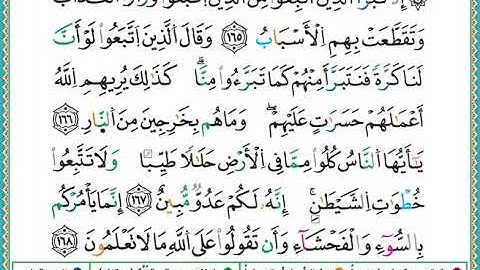 إِذْ تَبَرَّأَ ٱلَّذِينَ ٱتُّبِعُوا۟ مِنَ ٱلَّذِينَ ٱتَّبَعُوا۟ وَرَأَوُا۟ ٱلْعَذَابَ
وَتَقَطَّعَتْ بِهِمُ ٱلْأَسْبَابُ ١٦٥ وَقَالَ ٱلَّذِينَ ٱتَّبَعُوا۟ لَوْ أَنَّ
لَنَا كَرَّةً فَنَتَبَرَّأَ مِنْهُمْ كَمَا تَبَرَّءُوا۟ مِنَّا ۗ كَذَٰلِكَ يُرِيهِمُ ٱللَّهُ
أَعْمَٰلَهُمْ حَسَرَٰتٍ عَلَيْهِمْ ۖ وَمَا هُم بِخَٰرِجِينَ مِنَ ٱلنَّارِ ١٦٦
يَٰٓأَيُّهَا ٱلنَّاسُ كُلُوا۟ مِمَّا فِى ٱلْأَرْضِ حَلَٰلًا طَيِّبًا وَلَا تَتَّبِعُوا۟
خُطُوَٰتِ ٱلشَّيْطَٰنِ ۚ إِنَّهُۥ لَكُمْ عَدُوٌّ مُّبِينٌ ١٦٧ إِنَّمَا يَأْمُرُكُم
بِٱلسُّوٓءِ وَٱلْفَحْشَآءِ وَأَن تَقُولُوا۟ عَلَى ٱللَّهِ مَا لَا تَعْلَمُونَ ١٦٨